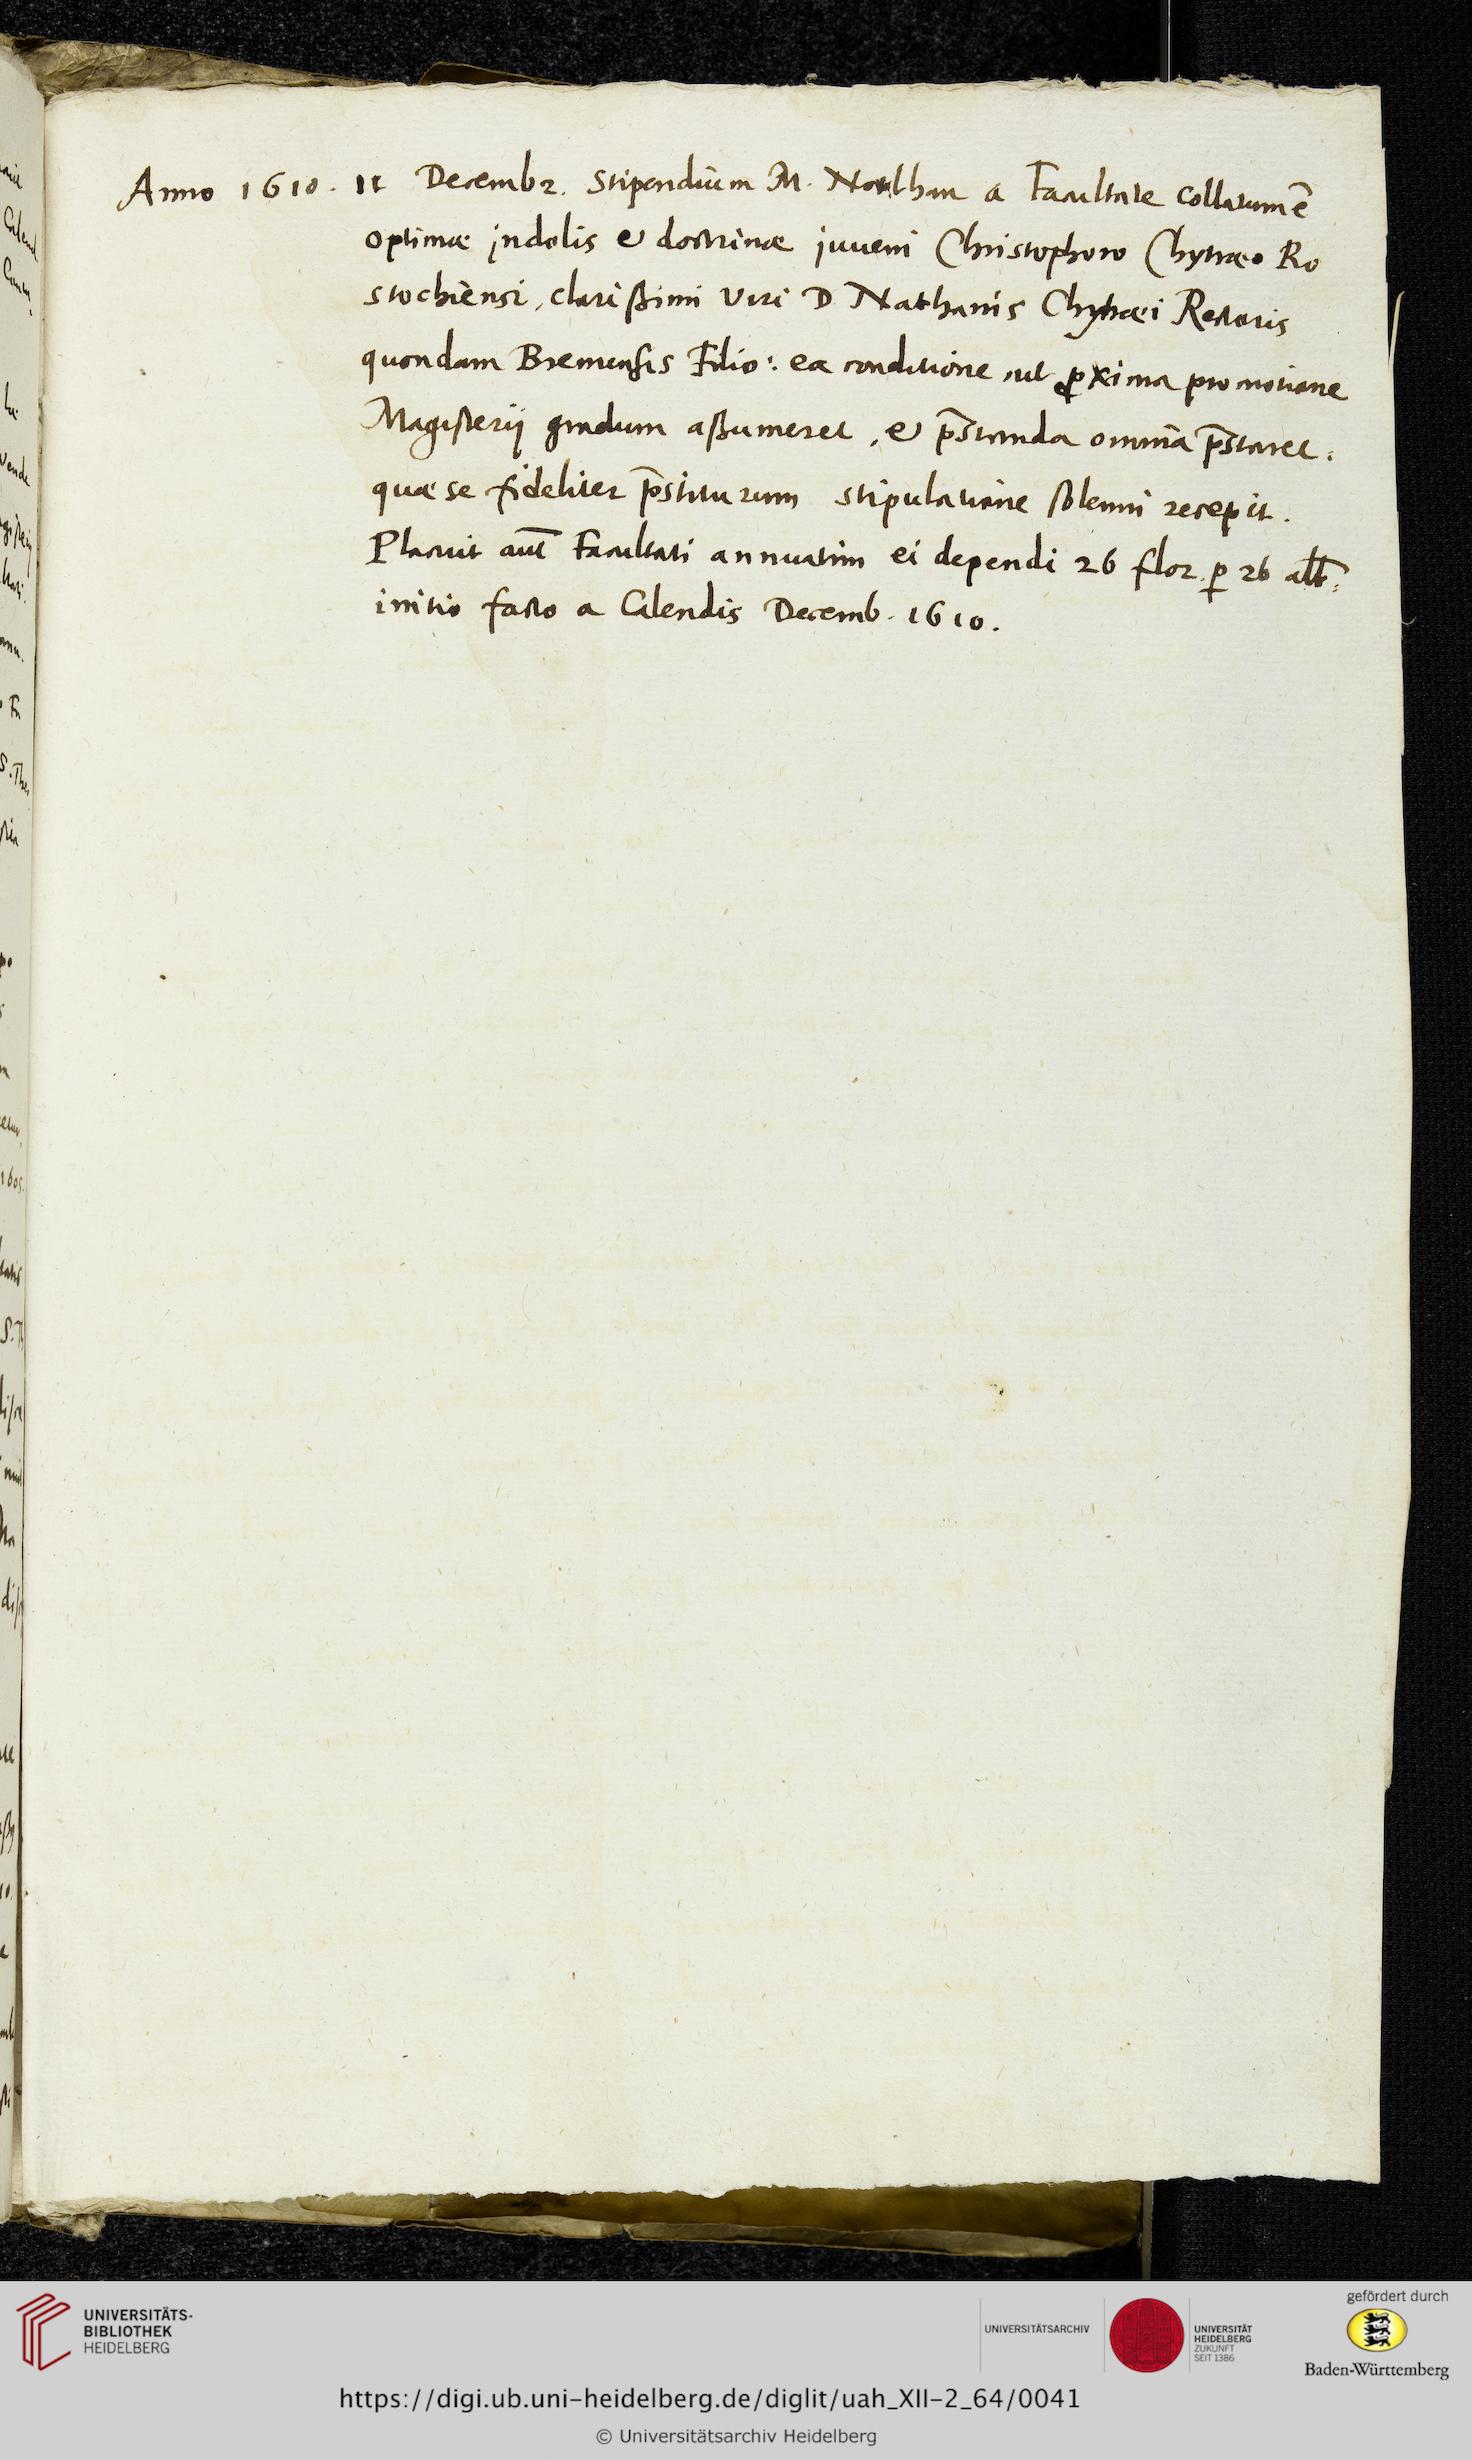 Anno 1610. 11 Decembr. Stipendium M. Nathan a Facultate collatum ē
optimæ jndolis & doctrinæ juveni Christophoro Chytræo Ro
stochiensi, clarißimi Viri D. Nathanis Chytræi Rectoris
quondam Bremensis Filio: ea conditione, ut ꝓxima promotione
Magisterij gradum aßumeret, & p̄standa omnia p̄staret.
quæ se fideliter p̄stiturum stipulatione solenni recepit.
Placuit aut̄ Facultati annuatim ei dependi 26 flor. ꝑ 26 alb:
initio facto a Calendis Decemb. 1610.
UNIVERSITÄTS-
BIBLIOTHEK
HEIDELBERG
UNIVERSITÄTSARCHIV
UNIVERSITÄT
HEIDELBERG
ZUKUNFT
SEIT 1386
gefördert durch
Baden-Württemberg
https://digi.ub.uni-heidelberg.de/diglit/uah_XII-2_64/0041
© Universitätsarchiv Heidelberg